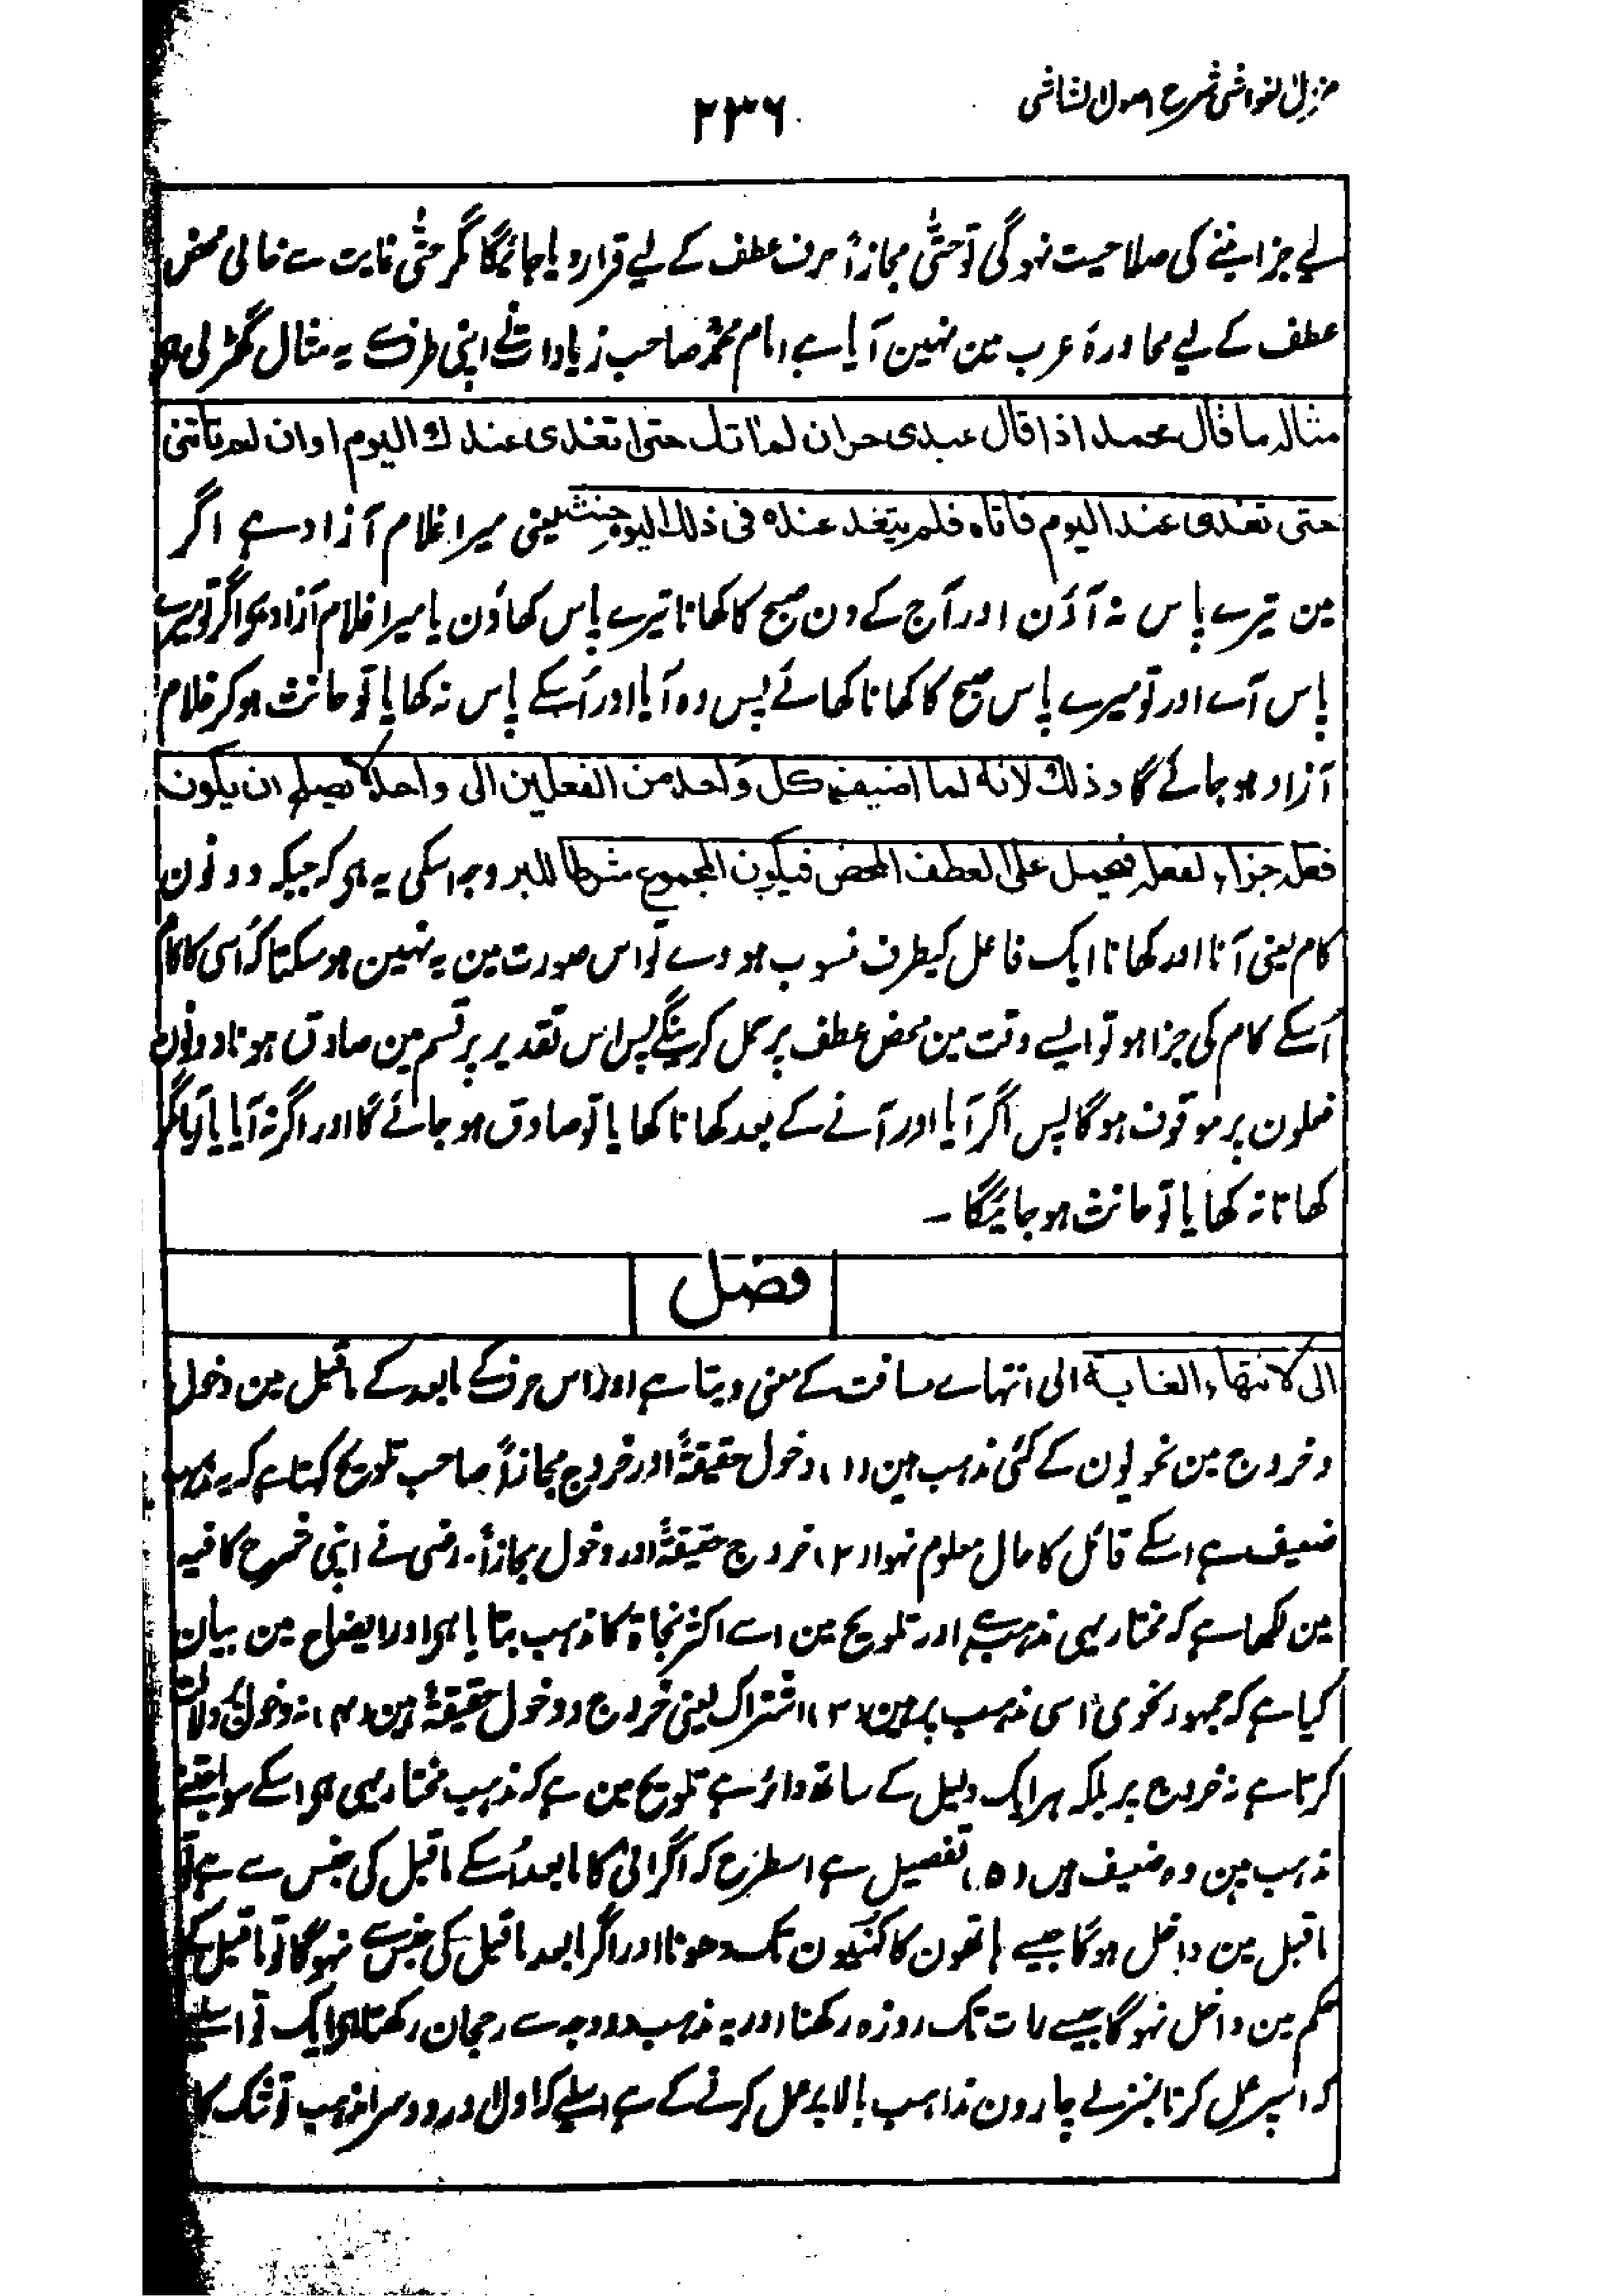 مزیل الغواشی شرح اصول الشاشی
۲۳۶
لیے جزا بننے کی صلاحیت نہوگی تو حتّٰی مجازاً حرف عطف کے لیے قرار دیا جائیگا مگر حتّٰی غایت سے خالی محض
عطف کے لیے محاورۂ عرب مین نہین آیا ہے امام محمدؒ صاحب زیادات نے اپنی طرف سے یہ مثال گھڑ لی ہی
مثالہ ما قال محمد اذا قال عبدی حر ان لم اٰتک حتی اتغدی عندک الیوم او ان لم تاتنی
حتی تغدی عند الیوم فاتاہ فلم یتغد عندہ فی ذلک الیوم حنث یعنی میرا غلام آزاد ہے اگر
مین تیرے پاس نہ آؤن اور آج کے دن صبح کا کھانا تیرے پاس کھاؤن یا میرا غلام آزاد ہی اگر تو میرے
پاس آے اور تو میرے پاس صبح کا کھانا کھائے پس وہ آیا اور اُسکے پاس نہ کھایا تو حانث ہوکر غلام
آزاد ہو جائے گا وذلک لانہ لما اضیف کل واحد من الفعلین الی واحد لا یصلح ان یکون
فعلہ جزاء لفعلہ فیحمل علی العطف المحض فیکون المجموع شرطا للبر وجہ اسکی یہ ہی کہ جبکہ دونون
کام یعنی آنا اور کھانا ایک فاعل کیطرف منسوب ہووے تو اس صورت مین یہ نہین ہوسکتا کہ اُسی کا کام
اُسکے کام کی جزا ہو تو ایسے وقت مین محض عطف پر حمل کرینگے پس اس تقدیر پر قسم مین صادق ہونا دونون
فعلون پر موقوف ہوگا پس اگر آیا اور آنے کے بعد کھانا کھایا تو صادق ہو جائے گا اور اگر نہ آیا یا آیا مگر
کھانا نہ کھایا تو حانث ہو جائیگا ۔
فصل
الی لانتہاء الغایة الی انتہاے مسافت کے معنی دیتا ہے اور اس حرف کے مابعد کے ماقبل مین دخول
وخروج مین نحویون کے کئی مذہب ہین (۱) دخول حقیقةً اور خروج مجازاً صاحب تلویح کہتا ہے کہ یہ مذہب
ضعیف ہے اسکے قائل کا حال معلوم نہوا (۲) خروج حقیقةً اور دخول مجازاً۔ رضی نے اپنی شرح کافیہ
مین لکھا ہے کہ مختار یہی مذہب ہے اور تلویح مین اسے اکثر نحاۃ کا مذہب بتایا ہی اور ایضاح مین بیان
کیا ہے کہ جمہور نحوی اسی مذہب پر ہین (۳) اشتراک یعنی خروج و دخول حقیقةً ہین (۴) نہ دخول پر دلالت
کرتا ہے نہ خروج پر بلکہ ہر ایک دلیل کے ساتھ دائر ہے تلویح مین ہے کہ مذہب مختار یہی ہی اسکے سوا جتنے
مذہب ہین وہ ضعیف ہین (۵) تفصیل ہے اسطرح کہ اگر الی کا مابعد اُسکے ماقبل کی جنس سے ہے تو
ماقبل مین داخل ہوگا جیسے ہاتھون کا کُہنیون تک دھونا اور اگر مابعد ماقبل کی جنس سے نہوگا تو ماقبل کے
حکم مین داخل نہوگا جیسے رات تک روزہ رکھنا اور یہ مذہب دو وجہ سے رجحان رکھتا ہی ایک تو اسلیے
کہ اسپر عمل کرنا بمنزلے چارون مذاہب بالا پر عمل کرنے کے ہے اسلیے کہ اول اور دوسرا مذہب تو شک کا